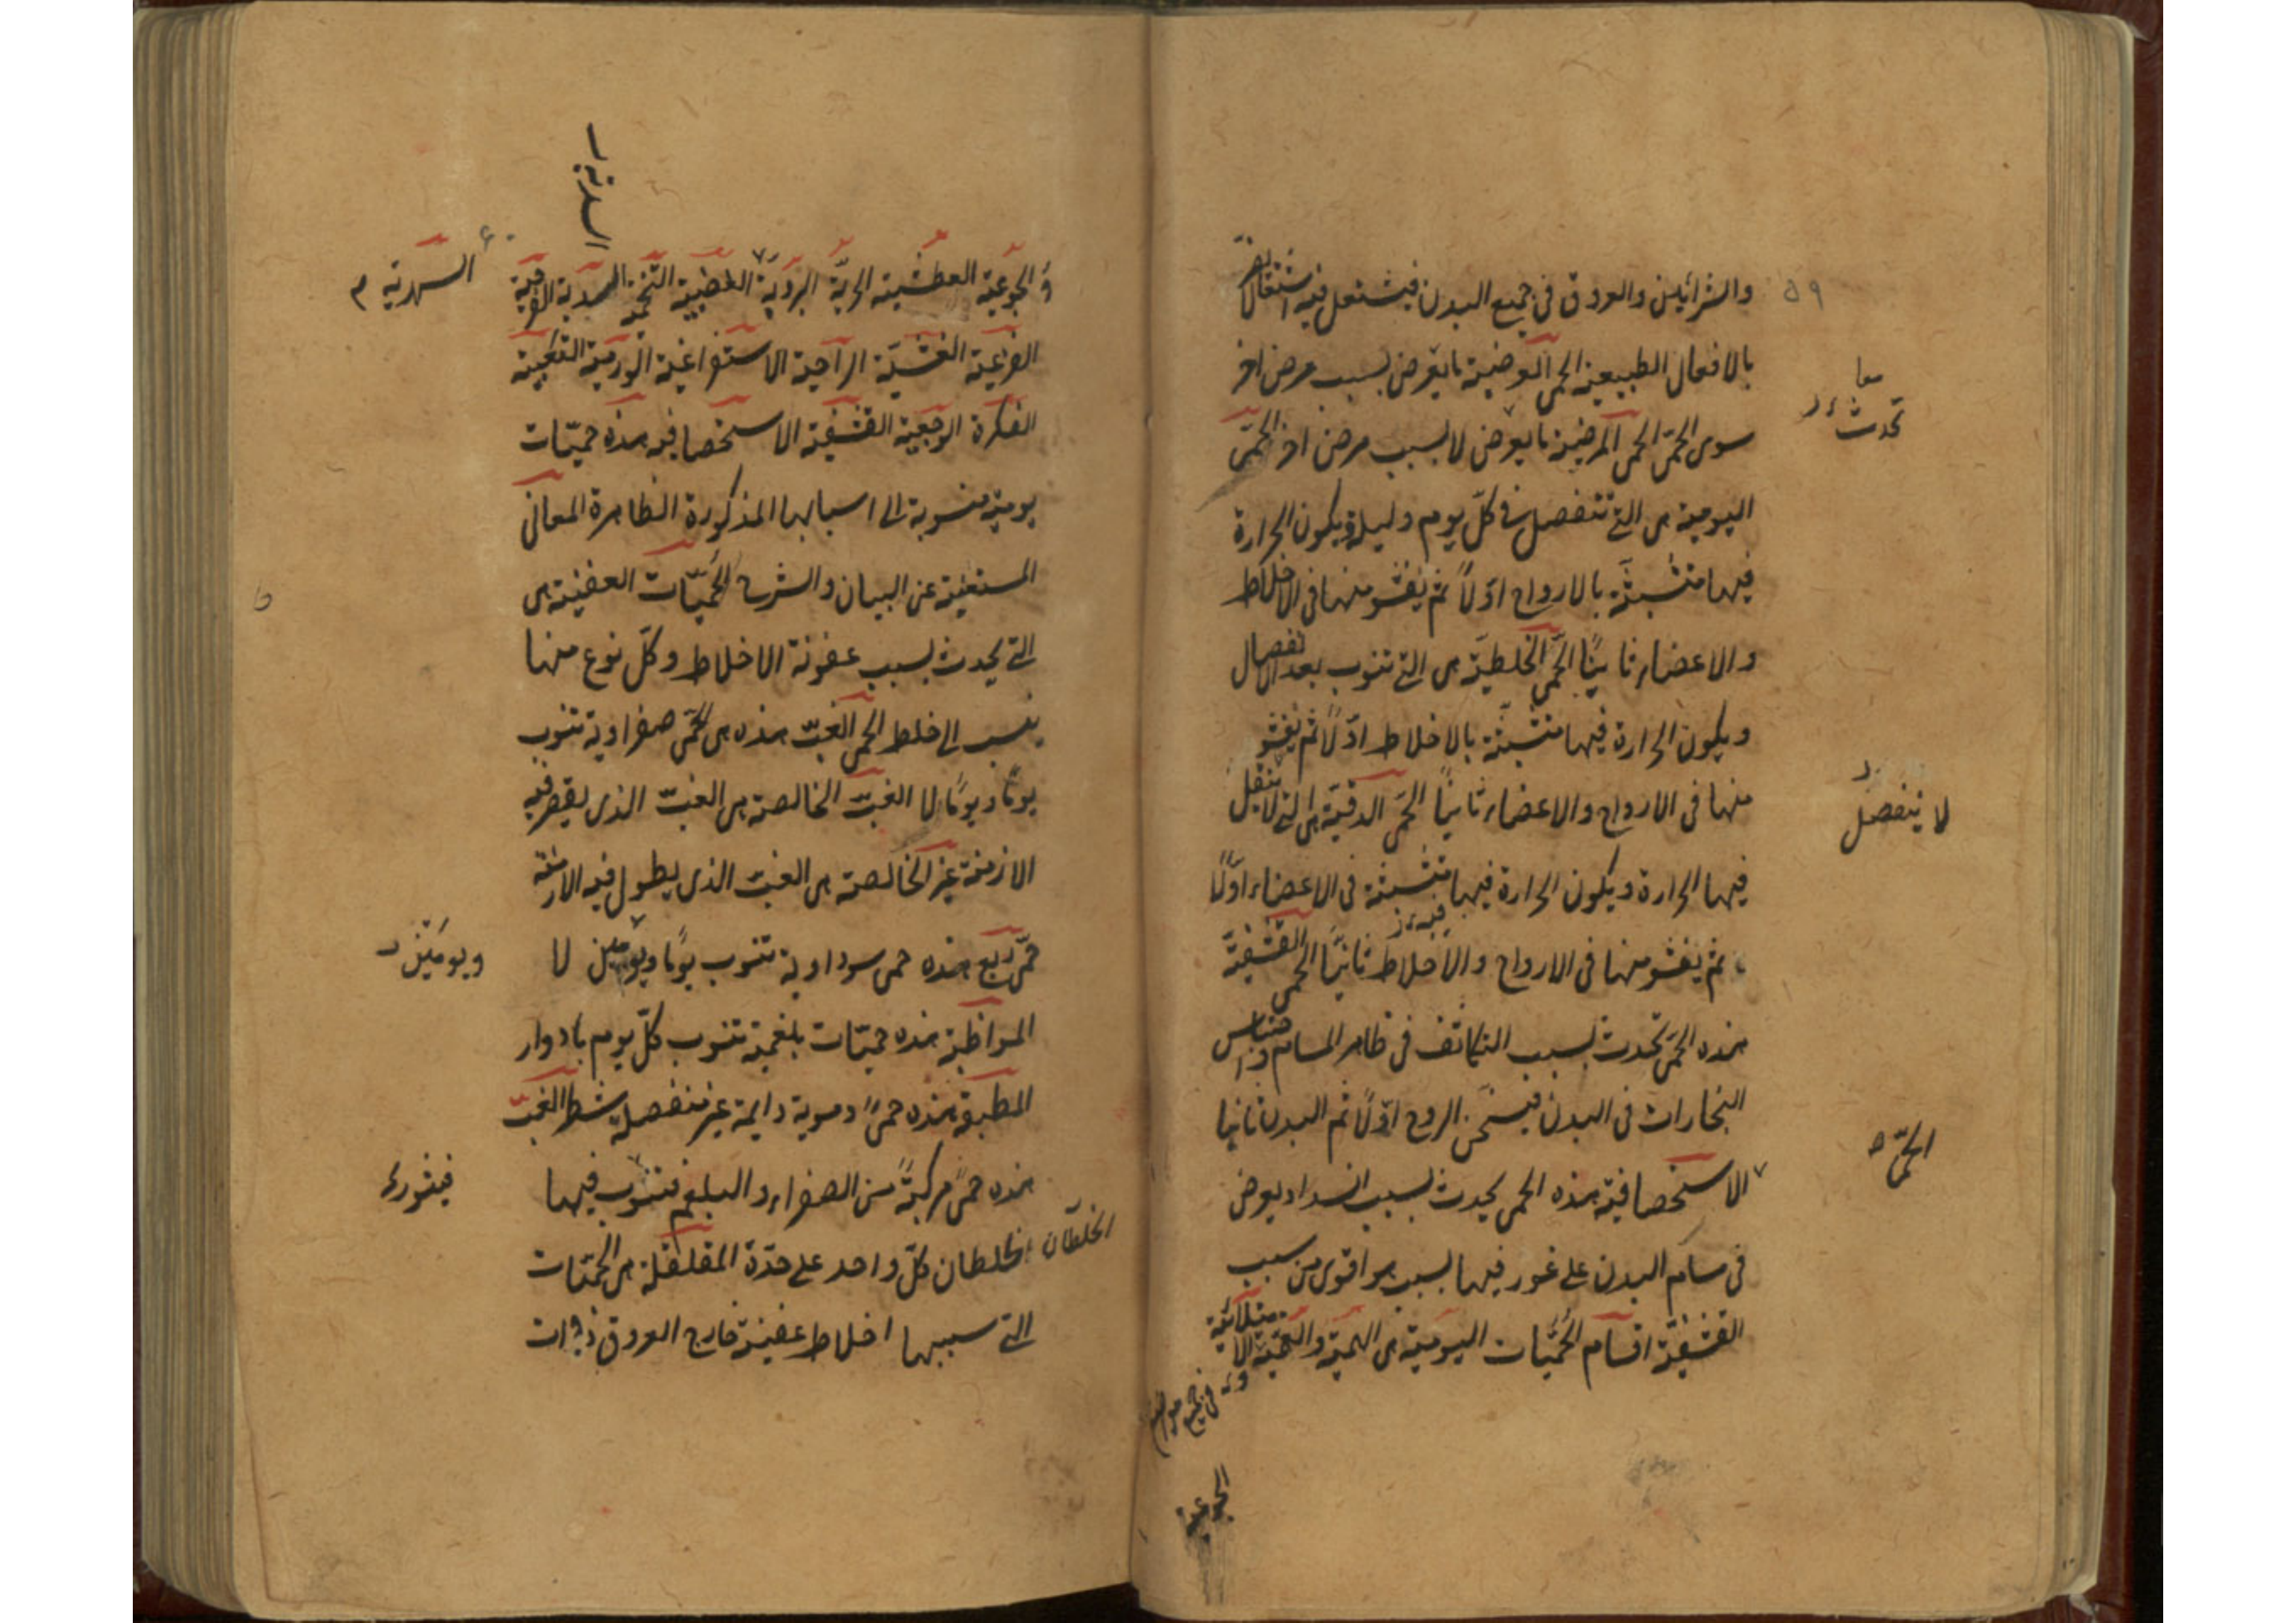 ٥٩
والشرائين والعروق في جميع البدن فيشتعل فيه اشتعالا يضر
بالافعال الطبيعية الحمى العرضية ما يعرض بسبب مرض اخر
معا
تحدث
سوى الحمى الحمى المرضية ما يعرض لا بسبب مرض اخر الحمى
اليومية هى التي تنفصل في كل يوم وليلة ويكون الحرارة
فيها متشبثة بالارواح اولا ثم يفشو منها فى الاخلاط
والاعضاء ثانيا الحمى الخلطية هى التي تنوب بعد انفصال
ويكون الحرارة فيها متشبثة بالاخلاط اولا ثم يفشو
منها فى الارواح والاعضاء ثانيا الحمى الدقية هى التي لا ينقل
لا ينفصل
فيها الحرارة ويكون الحرارة فيها متشبثة فى الاعضاء اولا
ثم يفشو منها فى الارواح والاخلاط ثانيا الحمى القشفية
هذه الحمى تحدث بسبب التكاثف فى ظاهر المسام واحتباس
البخارات فى البدن فيسخن الروح اولا ثم البدن ثانيا
الحمى
الاستحصافية هذه الحمى يحدث بسبب انسداد يعرض
فى مسام البدن على غور فيها بسبب هو اقوى من سبب
القشفية اقسام الحميات اليومية هى الهمية والغمية الامتلائية
الجوعية
السدية
والجوعية العطشية الحرية البردية الغضبية التخمية السدية الفرحية
السهرية م
الفزعية الغشية الراحية الاستفراغية الورمية التعبية
الفكرة الوجعية القشفية الاستحصافية هذه حميات
يومية منسوبة الى اسبابها المذكورة الظاهرة المعانى
المستغنية عن البيان والشرح الحميات العفنية هى
التي يحدث بسبب عفونة الاخلاط وكل نوع منها
ينسب الى خلط الحمى الغب هذه هى الحمى صفراوية تنوب
يوما ويوما لا الغب الخالصة هى الغب الذى يقصر فيه
الازمنة غير الخالصة هى الغب الذى يطول فيه الازمنة
حمى ربع هذه حمى سوداوية تنوب يوما ويومين لا
ويومين
المواظبة هذه حميات بلغمية تنوب كل يوم بادوار
المطبقة هذه حمى دموية دايمة غير منفصلة شطر الغب
هذه حمى مركبة من الصفراء والبلغم فتنوب فيها
فيثور
الخلطان
الخلطان كل واحد على حدة المقلقلة هى الحميات
التي سببها اخلاط عفنية خارج العروق ذوات